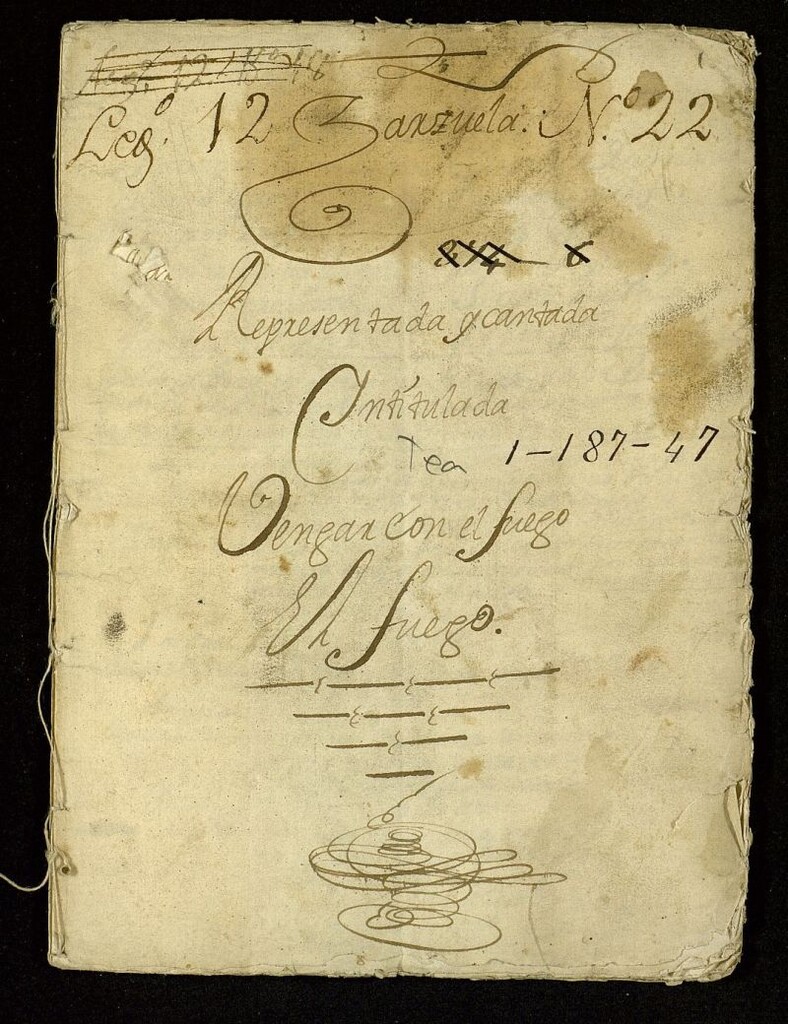 Leg.º 12 Zarzuela. N.º 22
Representada y cantada
Intitulada
Tea 1-187-47
Vengar con el fuego
El fuego.